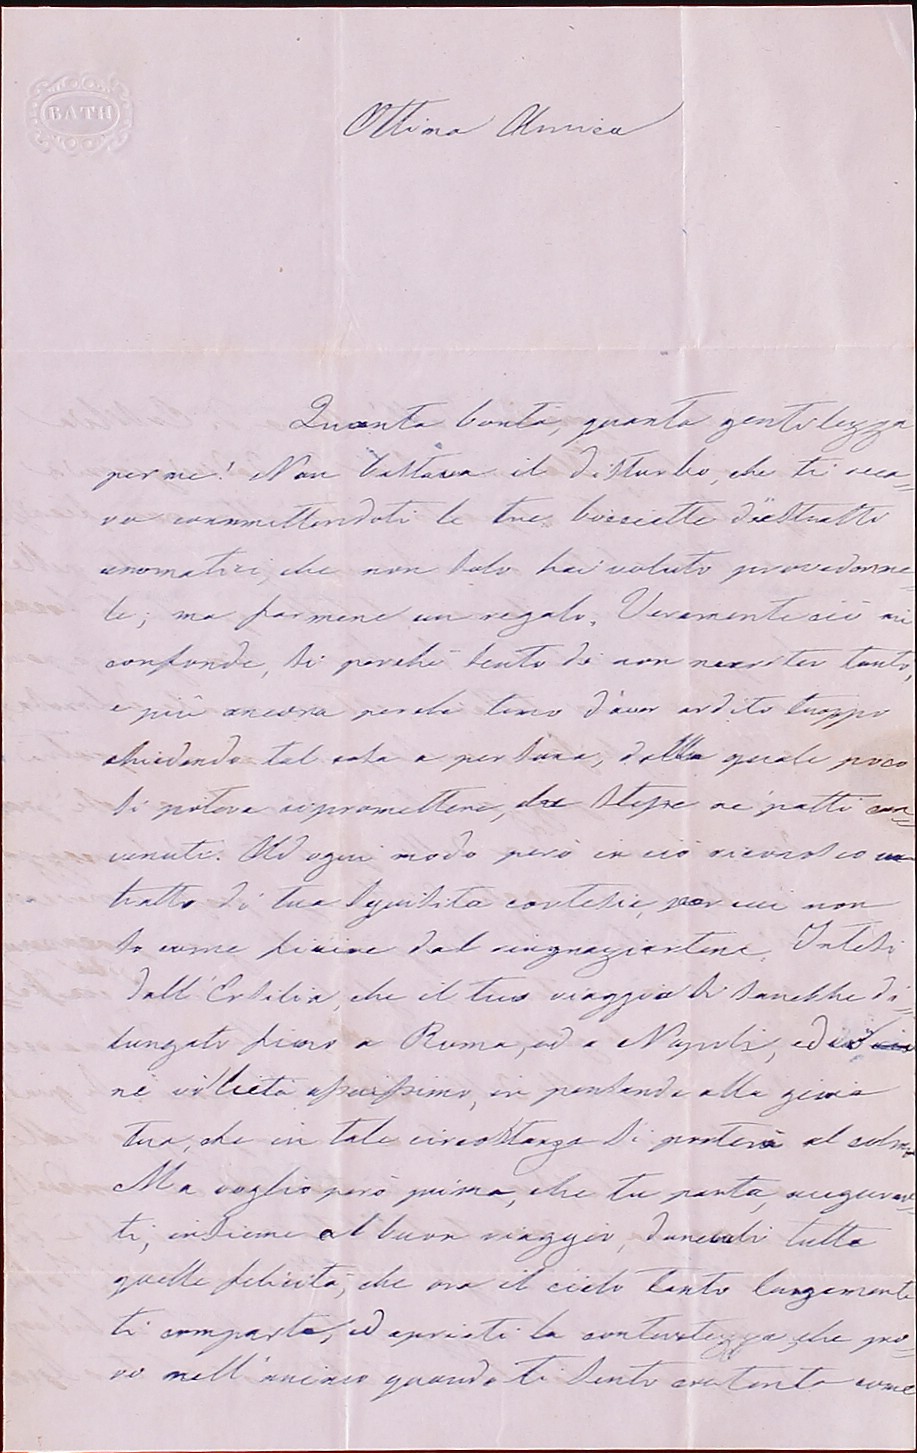 BATH
Ottima Amica
Quanta bontà, quanta gentilezza
per me! Non bastava il disturbo, che ti reca-
va commettendoti le tue boccette d'estratto
aromatici, che non solo hai voluto provvederme-
le; ma farmene un regalo. Veramente ciò mi
confonde, sì perchè sento di non meritar tanto,
e più ancora perchè temo d'aver ardito troppo
chiedendo tal cosa a persona, dalla quale poco
si poteva ripromettere, che stesse ne' patti con-
venuti. Ad ogni modo però in ciò riconosco un
tratto di tua squisita cortesia, per cui non
so come finire dal ringraziartene. Intesi
dall'Ersilia, che il tuo viaggio si sarebbe di-
lungato fino a Roma, ed a Napoli, ed io
ne vo lieta assaissimo, in pensando alla gioia
tua, che in tale circostanza si porterà al colmo.
Ma voglio però prima, che tu parta, augurar-
ti, insieme al buon viaggio, duraturi tutta
quelle felicità, che ora il cielo tanto largamente
ti comparte, ed aprirti la contentezza, che pro-
vo nell'animo quando ti sento contenta come